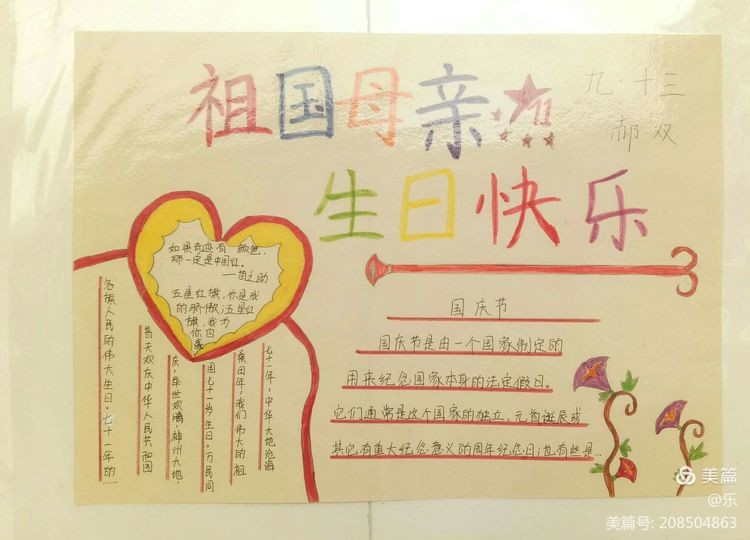 祖国母亲
九·十三
郝双
生日快乐
如果奇迹有颜色,
那一定是中国红。
五星红旗,你是我
的骄傲;五星红
旗,我为
你自
豪
七十一年,中华大地沧海
桑田年,我们伟大的祖
国七十一岁生日。万民同
庆,举世欢腾,神州大地,
普天欢庆中华人民共和国
各族人民的伟大生日。七十一年的……
国庆节
国庆节是由一个国家制定的
用来纪念国家本身的法定假日。
它们通常是这个国家的独立、元首诞辰或
其它有重大纪念意义的周年纪念日;也有些是…
美篇
@乐
美篇号: 208504863